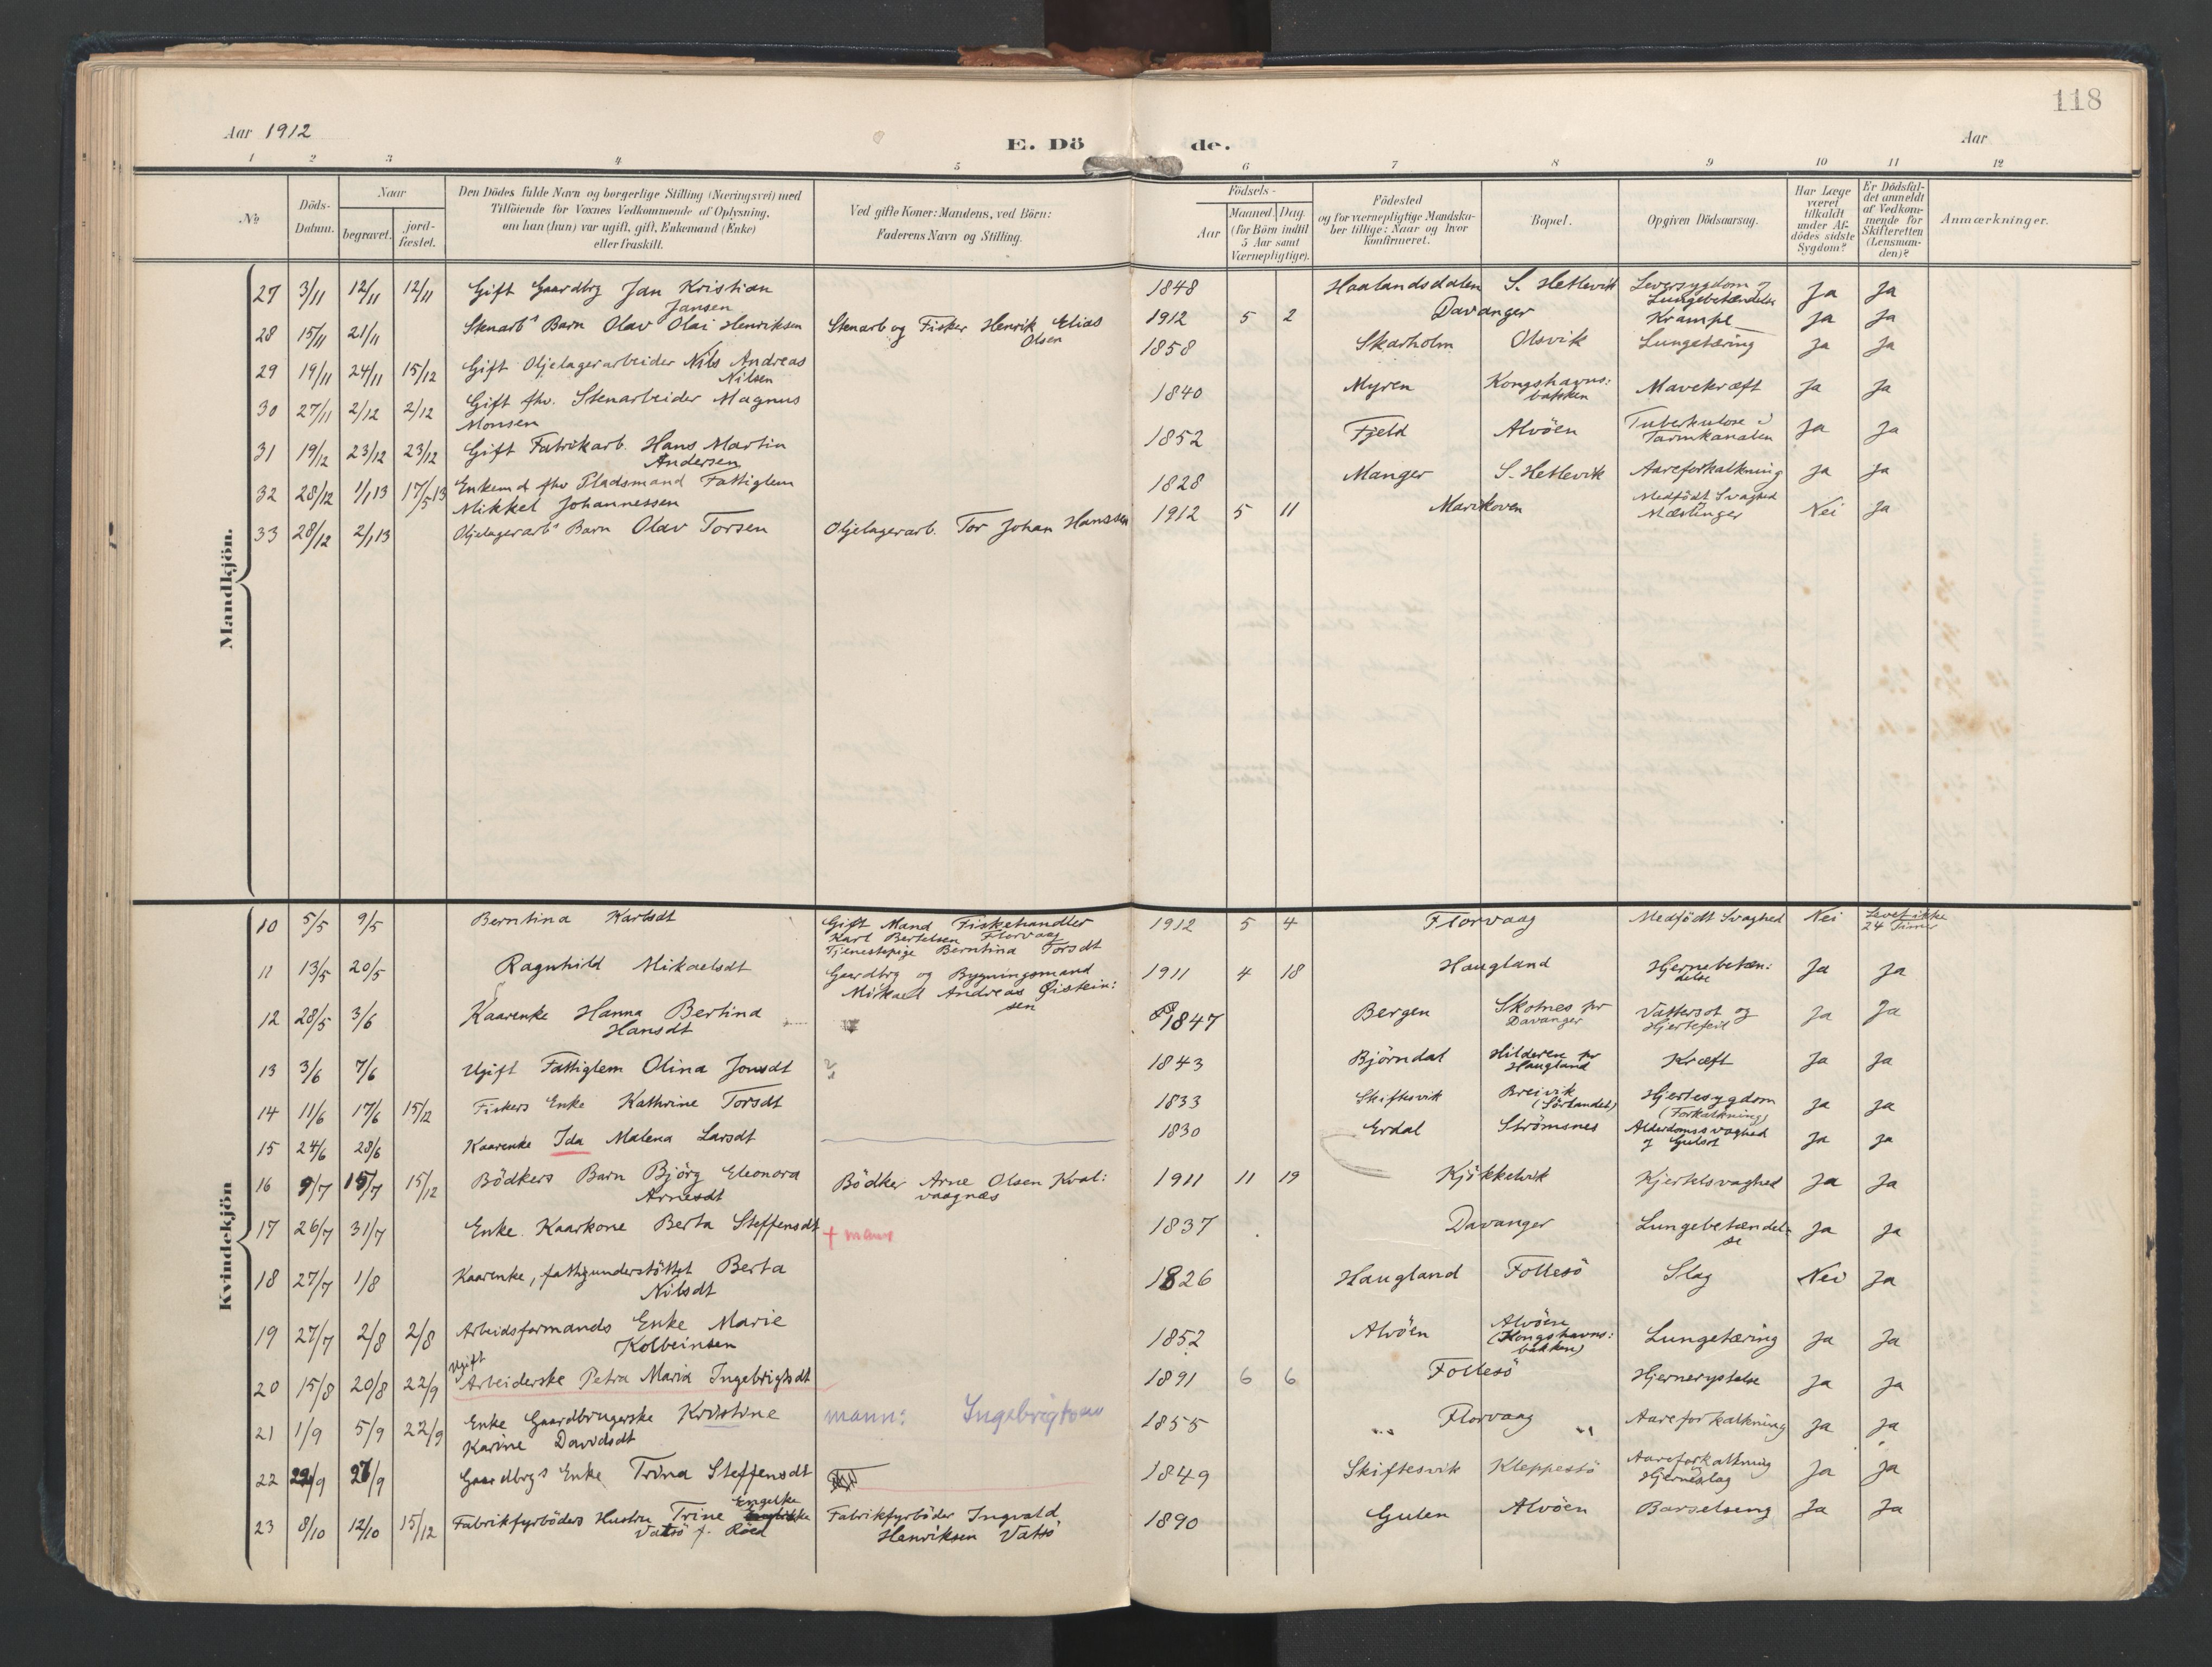 118
Aar 1912
E. Dö de.
Aar
1 2 3 4 5 6 7 8 9 10 11 12
No
Döds-
Datum.
Naar
begravet.
jord-
fæstet.
Den Dödes fulde Navn og borgerlige Stilling (Næringsvei) med
Tilföiende for Voxnes Vedkommende af Oplysning,
om han (hun) var ugift, gift, Enkemand (Enke)
eller fraskilt.
Ved gifte Koner: Mandens, ved Börn:
Faderens Navn og Stilling.
Födsels-
Aar
Maaned. Dag.
(for Börn indtil
5 Aar samt
Værnepligtige).
Födested
og for værnepligtige Mandska-
ber tillige: Naar og hvor
konfirmeret.
Bopæl.
Opgiven Dödsaarsag.
Har Læge
været
tilkaldt
under Af-
dödes sidste
Sygdom?
Er Dödsfal-
det anmeldt
af Vedkom-
mende for
Skifteretten
(Lensman-
den)?
Anmærkninger.
Mandkjön.
27 3/11 12/11 12/11 Gift Gaardbrg Jan Kristian
Jansen
1848 Haalandsdalen S. Hetlevik Leversygdom og
Lungebetændelse
Ja Ja
28 15/11 21/11 Stenarbs Barn Olav Olai Henriksen Stenarb og Fisker Henrik Elias
Olsen
1912 5 2 Davanger Krampe Ja Ja
29 19/11 24/11 15/12 Gift Oljelagerarbeider Nils Andreas
Nilsen
1858 Skarholm Olsvik Lungetæring Ja Ja
30 27/11 2/12 2/12 Gift fhv. Stenarbeider Magnus
Monsen
1840 Myren Kongshavns:
bakken
Mavekræft Ja Ja
31 19/12 23/12 23/12 Gift Fabrikarb. Hans Martin
Andersen
1852 Fjeld Alvöen Tuberkulose i
Tarmkanalen
Ja Ja
32 28/12 1/1 13 17/5 13 Enkemd fhv Pladsmand Fattiglem
Mikkel Johannessen
1828 Manger S. Hetlevik Aareforkalkning Ja Ja
33 28/12 2/1 13 Oljelagerarbs Barn Olav Torsen Oljelagerarb. Tor Johan Hanssen
1912 5 11 Marikoven Medfödt Svaghed
Mæslinger
Nei Ja
Kvindekjön
10 5/5 9/5 Berntina Karlsdt Gift Mand Fiskehandler
Karl Bertelsen Florvaag
Tjenestepige Berntina Torsdt
1912 5 4 Florvaag Medfödt Svaghed Nei Levet ikke
24 Timer
11 13/5 20/5 Ragnhild Mikaelsdt Gaardbrg og Bygningsmand
Mikael Andreas Øistein:
sen
1911 4 18 Haugland Hjernebetæn:
delse
Ja Ja
12 28/5 3/6 Kaarenke Hanna Bertina
Hansdt
1847 Bergen Skotnes pr
Davanger
Vattersot og
Hjertefeil
Ja Ja
13 3/6 7/6 Ugift Fattiglem Olina Jonsdt
1843 Björndal Hilderen pr
Haugland
Kræft Ja Ja
14 11/6 17/6 15/12 Fiskers Enke Kathrine Torsdt
1833 Skiftesvik Breivik
(Sörlandet)
Hjertesygdom
(Forkalkning)
Ja Ja
15 24/6 28/6 Kaarenke Ida Malena Larsdt
1830 Erdal Strömsnes Alderdomssvaghed
og Gulsot
Ja Ja
16 9/7 15/7 15/12 Bödkers Barn Björg Eleonora
Arnesdt
Bödker Arne Olsen Kval:
vaagnæs
1911 11 19 Kjökkelvik Kjertelsvaghed Ja Ja
17 26/7 31/7 Enke Kaarkone Berta Steffensdt + mann
1837 Davanger Lungebetændel-
se
Ja Ja
18 27/7 1/8 Kaarenke, fattigunderstöttet Berta
Nilsdt
1826 Haugland Follesö Slag Nei Ja
19 27/7 2/8 2/8 Arbeidsformands Enke Marie
Kolbeinsen
1852 Alvöen Alvöen
(Kongshavns:
bakken)
Lungetæring Ja Ja
20 15/8 20/8 22/9 Ugift
Arbeiderske Petra Maria Ingebrigtsdt
1891 6 6 Follesö Hjernerystelse Ja Ja
21 1/9 5/9 22/9 Enke Gaardbrugerske Kristine
Karine Davidsdt
mann: Ingebrigtsen
1855 „ Florvaag „ Aareforkalkning Ja Ja
22 22/9 27/9 Gaardbrgs Enke Trina Steffensdt
1849 Skiftesvik Kleppestö Aareforkalkning
Hjerneslag
Ja Ja
23 8/10 12/10 15/12 Fabrikfyrböders Hustru Trine Engelke
Vatsö f. Röed
Fabrikfyrböder Ingvald
Henriksen Vatsö
1890 Gulen Alvöen Barselseng Ja Ja